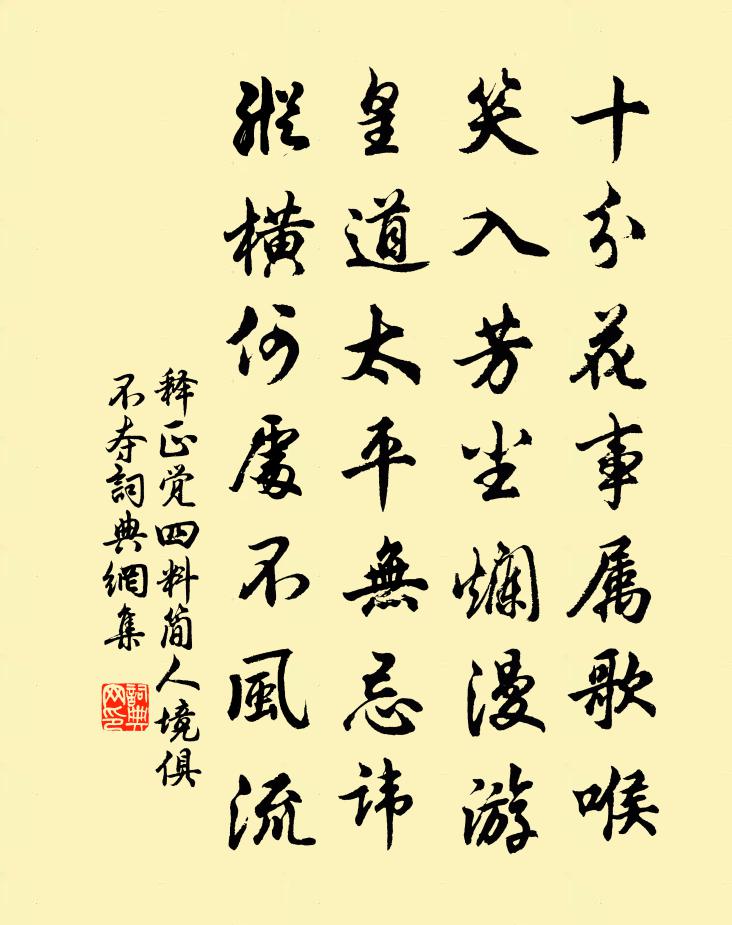 十分花事属歌喉
笑入芳尘爛漫游
皇道太平無忌讳
縱横何處不風流
释正觉四料简人境俱
不夺詞典網集
詞典网印